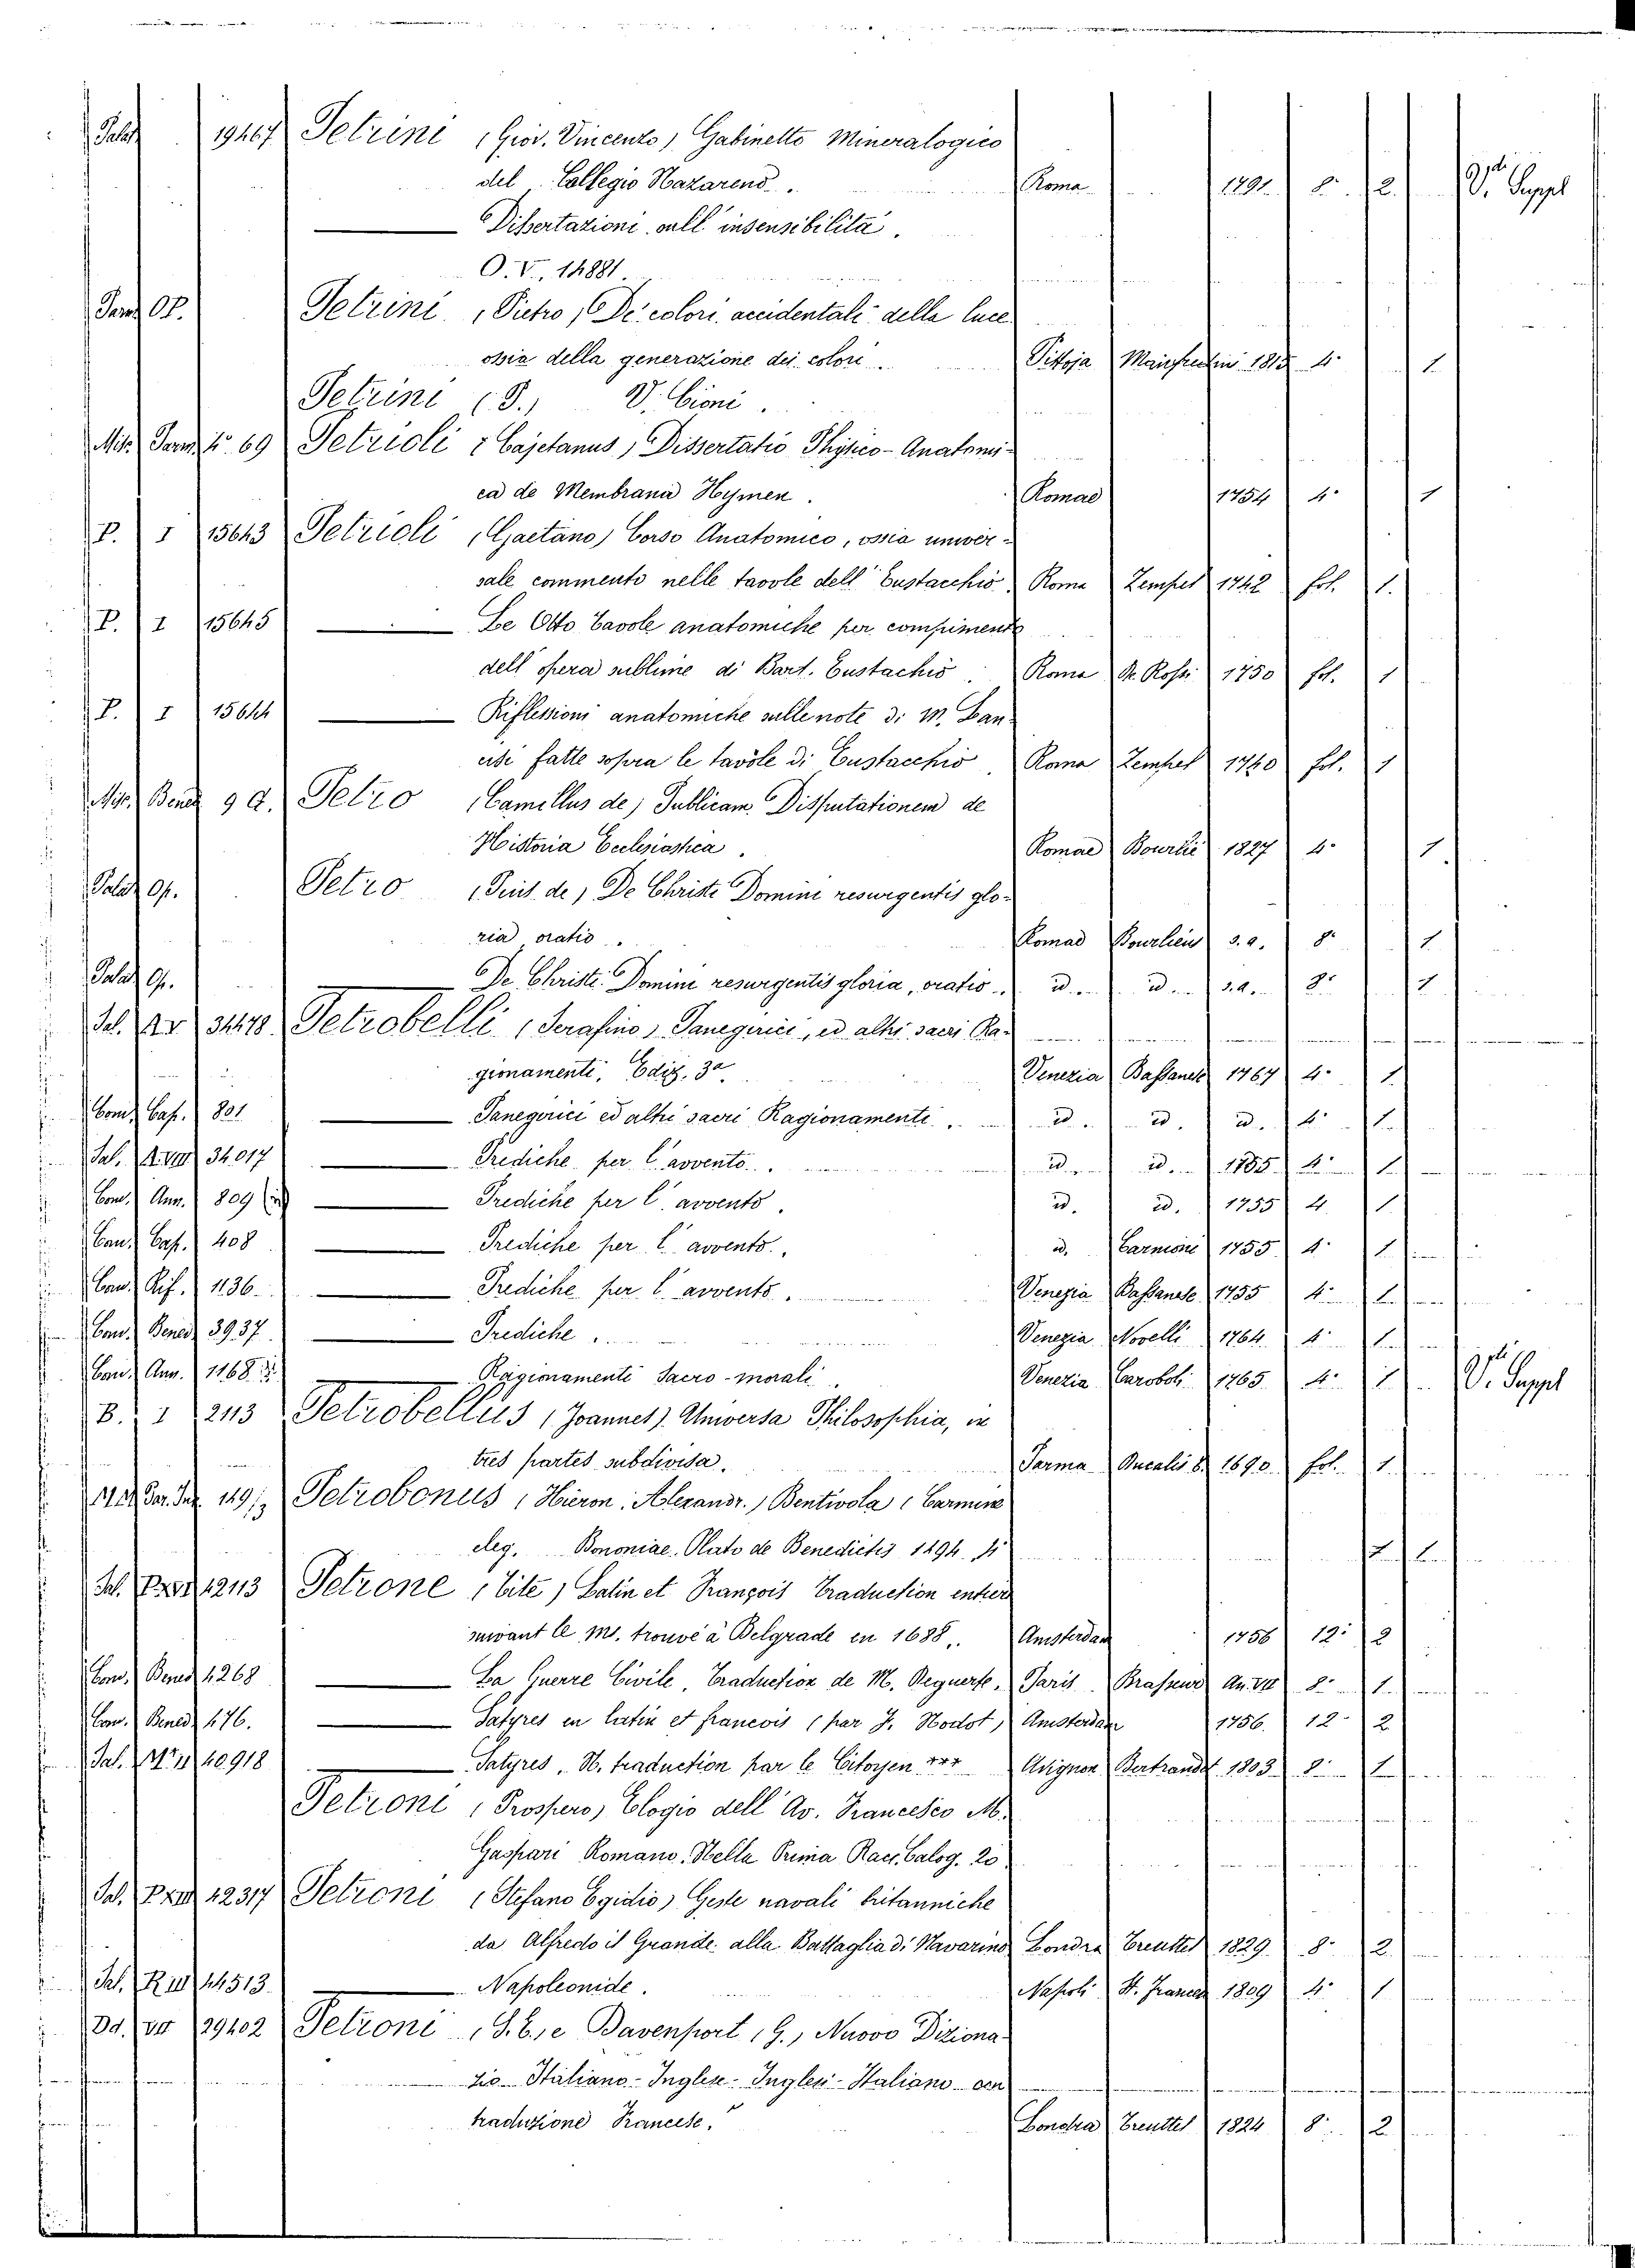 Palat 19467 Petrini (Giov. Vincenzo) Gabinetto Mineralogico
del Collegio Nazareno. Roma 1791. 8. 2. V. Suppl
Dissertazioni sull' insensibilità.
O. V. 14881
Pam Op. Petrini (Pietro) De' colori accidentali della luce
ossia della generazione dei colori. Pistoja Manfredini 1815 4. 1
Petrini (P.) V. Cioni.
Mis. Pam 4. 69 Petrioli (Cajetanus) Dissertatio Physico-Anatomi-
ca de Membrana Hymen. Romae 1754 4. 1
P. I 15643 Petrioli (Gaetano) Corso Anatomico, ossia univer-
sale commento nelle tavole dell' Eustacchio Roma Zempel 1742 fol. 1.
P. I 15645 Le Otto Tavole anatomiche per compimento
dell' opera sublime di Bart. Eustachio. Roma De Rossi 1750 fol. 1
P. I 15644 Riflessioni anatomiche sulle note di M. Lan-
cisi fatte sopra le tavole di Eustacchio Roma Zempel 1740 fol. 1
Mis. Bened 9 a. Petro (Camillus de) Publicam Disputationem de
Historia Ecclesiastica. Romae Bourliè 1827 4. 1.
Palat Op. Petro (de) De Christi Domini resurgentis glo-
ria oratio. Romae s.a. 8. 1
Palat Op. De Christi Domini resurgentis gloria, oratio. id. id. s.a. 8. 1
Petrobelli (Serafino) Panegirici, ed altri sacri Ra-
gionamenti, Ediz. 3a. Venezia Bassanese 1767 4. 1.
Com. Cap. 801 Panegirici ed altri sacri Ragionamenti. id. id. id. 4. 1.
34017 Prediche per l'avvento. id. id. 1755 4. 1
Con. Ann. 809 Prediche per l'avvento. id. id. 1755 4 1
Con. Cap. 408 Prediche per l'avvento. id. Carnioni 1755 4. 1.
Con. Rif. 1136. Prediche per l'avvento. Venezia Bassanese 1755 4. 1.
Con. Bened 3937. Prediche. Venezia Novelli 1764 4. 1.
Con. Ann. 1168 Ragionamenti Sacro-morali. Venezia Caroboli 1765. 4. 1 V. Suppl
B. I 2113 Petrobellus (Joannes) Universa Philosophia, in
tres partes subdivisa. Parma 1690. fol. 1.
Petrobonus (Hieron. Alexandr.) Bentivola (Carmine
eleg. Bononiae. Plato de Benedictis 1494. 4 1.
12113 Petrone (Tite) Latin et François Traduction entier
suivant le M. trouvé à Belgrade en 1688. Amsterdam 1756 12. 2
Con. Bened 4268 La Guerre Civile, Traduction de M. Deguerle. Paris Brasseur An. VII 8. 1.
Con. Bened 476. Satyres en latin et francois (par J. Nodot) Amsterdam 1756. 12. 2
40918 Satyres, N. traduction par le Citoyen *** Avignon Bertrandet 1803 8. 1
Petroni (Prospero) Elogio dell' Av. Francesco M.
Gaspari Romano. Nella Prima Racc. Calog. 20
42317 Petroni (Stefano Egidio) Geste navali britanniche
da Alfredo il Grande alla Battaglia di Navarino Londra Treuttel 1829. 8. 2
14513. Napoleonide. Napoli St. Frances 1809 4. 1
29402 Petroni (S. E.) e Davenport (G.) Nuovo Diziona-
rio Italiano-Inglese-Inglese-Italiano con
traduzione Francese. Londra Treuttel 1824 8. 2